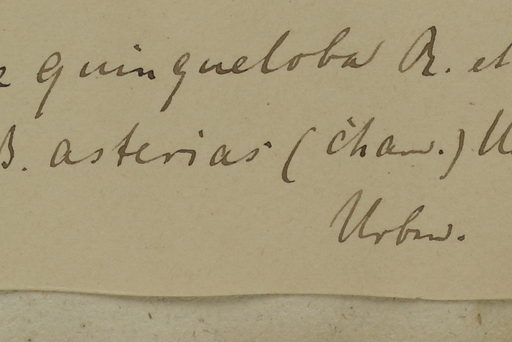 quinqueloba R. et
B. asterias (Cham.) U
Urban.